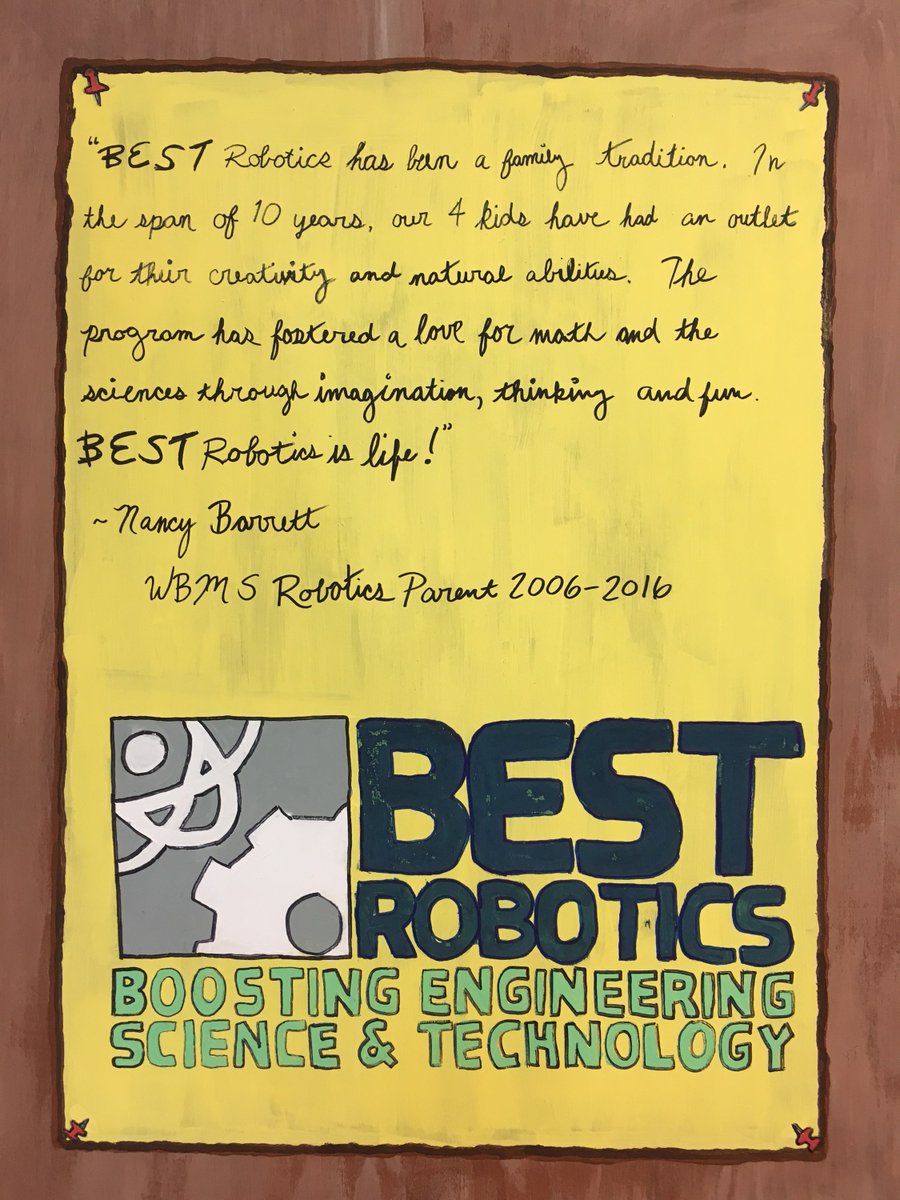 "BEST Robotics has been a family tradition. In
the span of 10 years, our 4 kids have had an outlet
for their creativity and natural abilities. The
program has fostered a love for math and the
sciences through imagination, thinking and fun.
BEST Robotics is life!"
~Nancy Barrett
WBMS Robotics Parent 2006-2016
BEST
ROBOTICS
BOOSTING ENGINEERING
SCIENCE & TECHNOLOGY